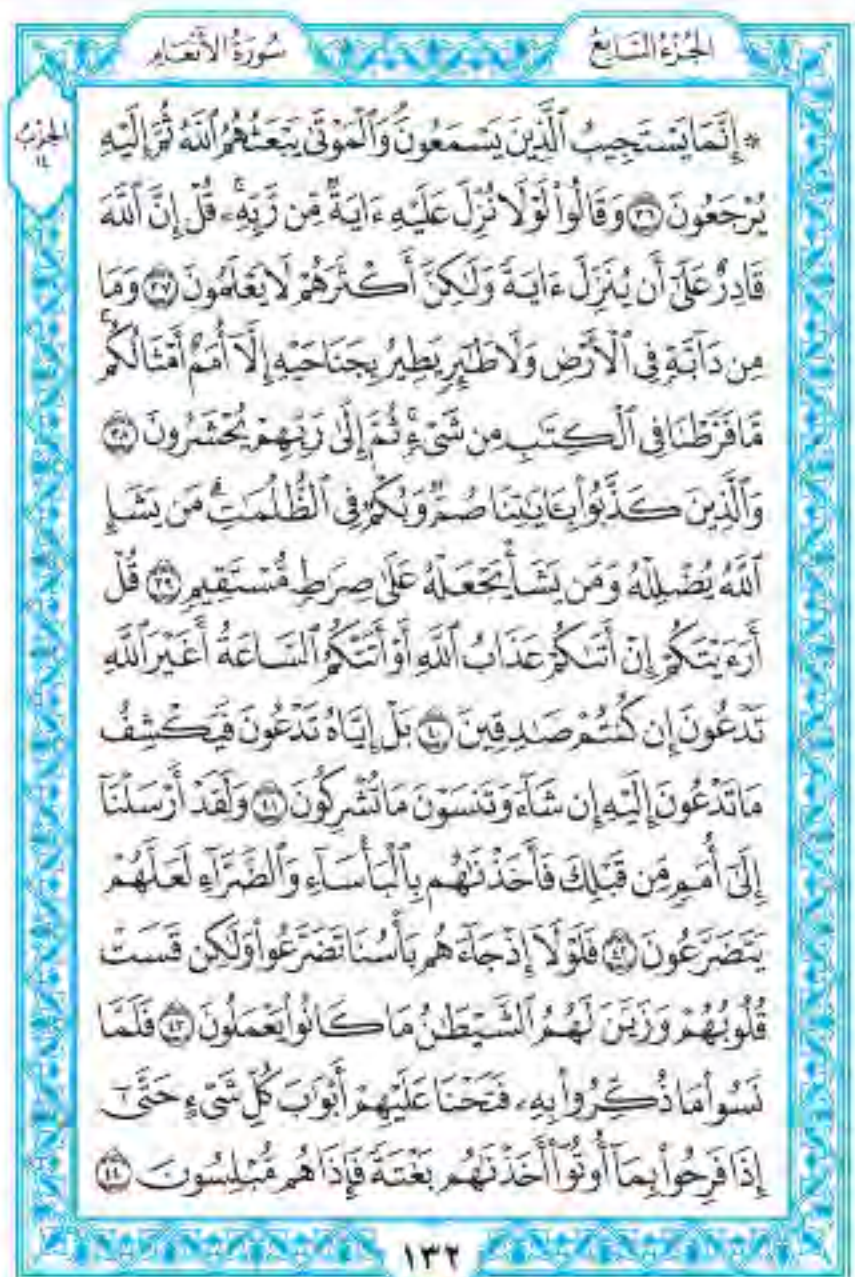 الجُزْءُ السَّابِعُ
سُورَةُ الأَنْعَامِ
الحِزْبُ
١٤
۞ إِنَّمَا يَسْتَجِيبُ ٱلَّذِينَ يَسْمَعُونَۘ وَٱلْمَوْتَىٰ يَبْعَثُهُمُ ٱللَّهُ ثُمَّ إِلَيْهِ
يُرْجَعُونَ ٣٦ وَقَالُواْ لَوْلَا نُزِّلَ عَلَيْهِ ءَايَةٌ مِّن رَّبِّهِۦۚ قُلْ إِنَّ ٱللَّهَ
قَادِرٌ عَلَىٰٓ أَن يُنَزِّلَ ءَايَةً وَلَٰكِنَّ أَكْثَرَهُمْ لَا يَعْلَمُونَ ٣٧ وَمَا
مِن دَآبَّةٍ فِي ٱلْأَرْضِ وَلَا طَٰٓئِرٍ يَطِيرُ بِجَنَاحَيْهِ إِلَّآ أُمَمٌ أَمْثَالُكُمۚ
مَّا فَرَّطْنَا فِي ٱلْكِتَٰبِ مِن شَيْءٍۚ ثُمَّ إِلَىٰ رَبِّهِمْ يُحْشَرُونَ ٣٨
وَٱلَّذِينَ كَذَّبُواْ بِـَٔايَٰتِنَا صُمٌّ وَبُكْمٌ فِي ٱلظُّلُمَٰتِۗ مَن يَشَإِ
ٱللَّهُ يُضْلِلْهُ وَمَن يَشَأْ يَجْعَلْهُ عَلَىٰ صِرَٰطٍ مُّسْتَقِيمٍ ٣٩ قُلْ
أَرَءَيْتَكُمْ إِنْ أَتَىٰكُمْ عَذَابُ ٱللَّهِ أَوْ أَتَتْكُمُ ٱلسَّاعَةُ أَغَيْرَ ٱللَّهِ
تَدْعُونَ إِن كُنتُمْ صَٰدِقِينَ ٤٠ بَلْ إِيَّاهُ تَدْعُونَ فَيَكْشِفُ
مَا تَدْعُونَ إِلَيْهِ إِن شَآءَ وَتَنسَوْنَ مَا تُشْرِكُونَ ٤١ وَلَقَدْ أَرْسَلْنَآ
إِلَىٰٓ أُمَمٍ مِّن قَبْلِكَ فَأَخَذْنَٰهُم بِٱلْبَأْسَآءِ وَٱلضَّرَّآءِ لَعَلَّهُمْ
يَتَضَرَّعُونَ ٤٢ فَلَوْلَآ إِذْ جَآءَهُم بَأْسُنَا تَضَرَّعُواْ وَلَٰكِن قَسَتْ
قُلُوبُهُمْ وَزَيَّنَ لَهُمُ ٱلشَّيْطَٰنُ مَا كَانُواْ يَعْمَلُونَ ٤٣ فَلَمَّا
نَسُواْ مَا ذُكِّرُواْ بِهِۦ فَتَحْنَا عَلَيْهِمْ أَبْوَٰبَ كُلِّ شَيْءٍ حَتَّىٰٓ
إِذَا فَرِحُواْ بِمَآ أُوتُوٓاْ أَخَذْنَٰهُم بَغْتَةً فَإِذَا هُم مُّبْلِسُونَ ٤٤
١٣٢